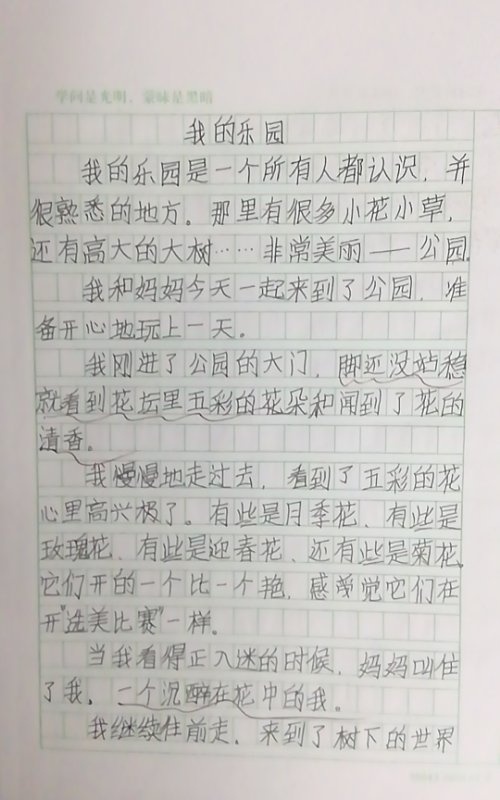 学问是光明，蒙昧是黑暗
我的乐园
我的乐园是一个所有人都认识，并
很熟悉的地方。那里有很多小花小草，
还有高大的大树……非常美丽——公园。
我和妈妈今天一起来到了公园，准
备开心地玩上一天。
我刚进了公园的大门，脚还没站稳
就看到花坛里五彩的花朵和闻到了花的
清香。
我慢慢地走过去，看到了五彩的花
心里高兴极了。有些是月季花、有些是
玫瑰花、有些是迎春花、还有些是菊花。
它们开的一个比一个艳，感觉它们在
开"选美比赛"一样。
当我看得正入迷的时候，妈妈叫住
了我。一个沉醉在花中的我。
我继续住前走，来到了树下的世界